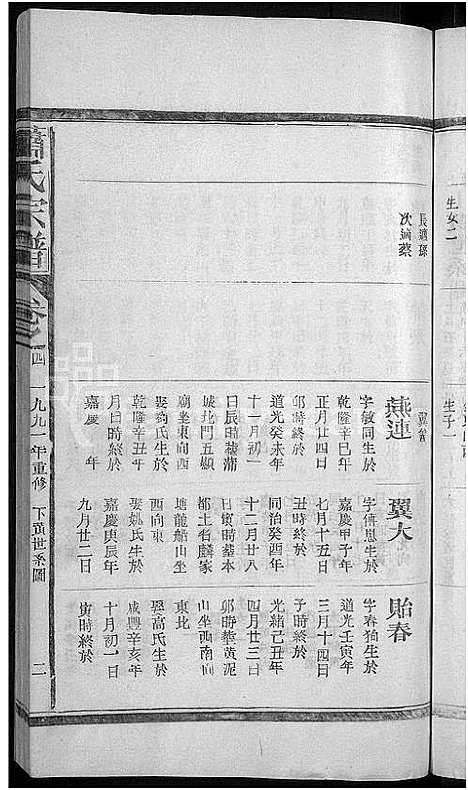 生女二
生子一
長適孫
次適蔡
燕連
字敏同生於
乾隆辛巳年
正月廿四日
卯時終於
道光癸未年
十一月初一
日辰時葬蒲
城北門五顯
廟坐東向西
娶劉氏生於
乾隆辛丑年
月日時終於
嘉慶 年
翼大
字儐思生於
嘉慶甲子年
七月十五日
丑時終於
同治癸酉年
十二月廿八
日寅時墓本
都土名麟家
塘龍船山坐
西向東
娶姚氏生於
嘉慶庚辰年
九月廿二日
貽春
字春狗生於
道光壬寅年
三月十四日
子時終於
光緒己丑年
四月廿三日
卯時葬黃泥
山坐西南向
東北
娶高氏生於
咸豐辛亥年
十月初一日
寅時終於
蕭氏宗譜
卷之四
一九九一年重修
下黃世系圖
二